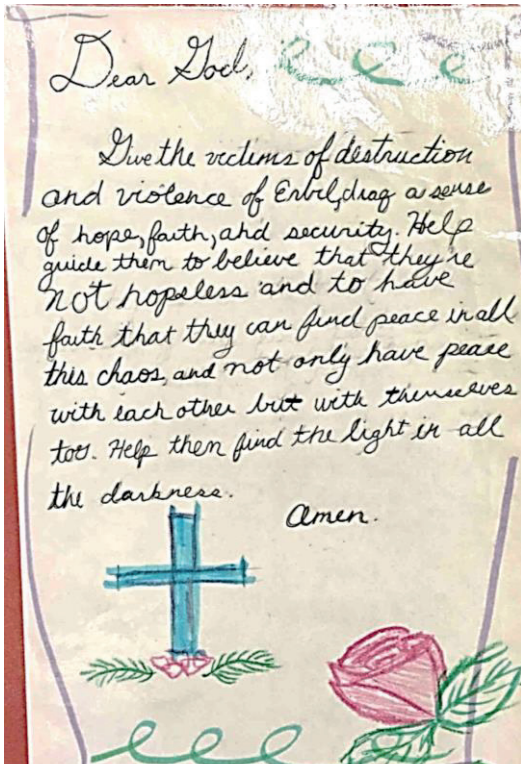 Dear God,
Give the victims of destruction
and violence of Erbil, Iraq a sense
of hope, faith, and security. Help
guide them to believe that they're
not hopeless and to have
faith that they can find peace in all
this chaos, and not only have peace
with each other but with themselves
too. Help then find the light in all
the darkness.
Amen.